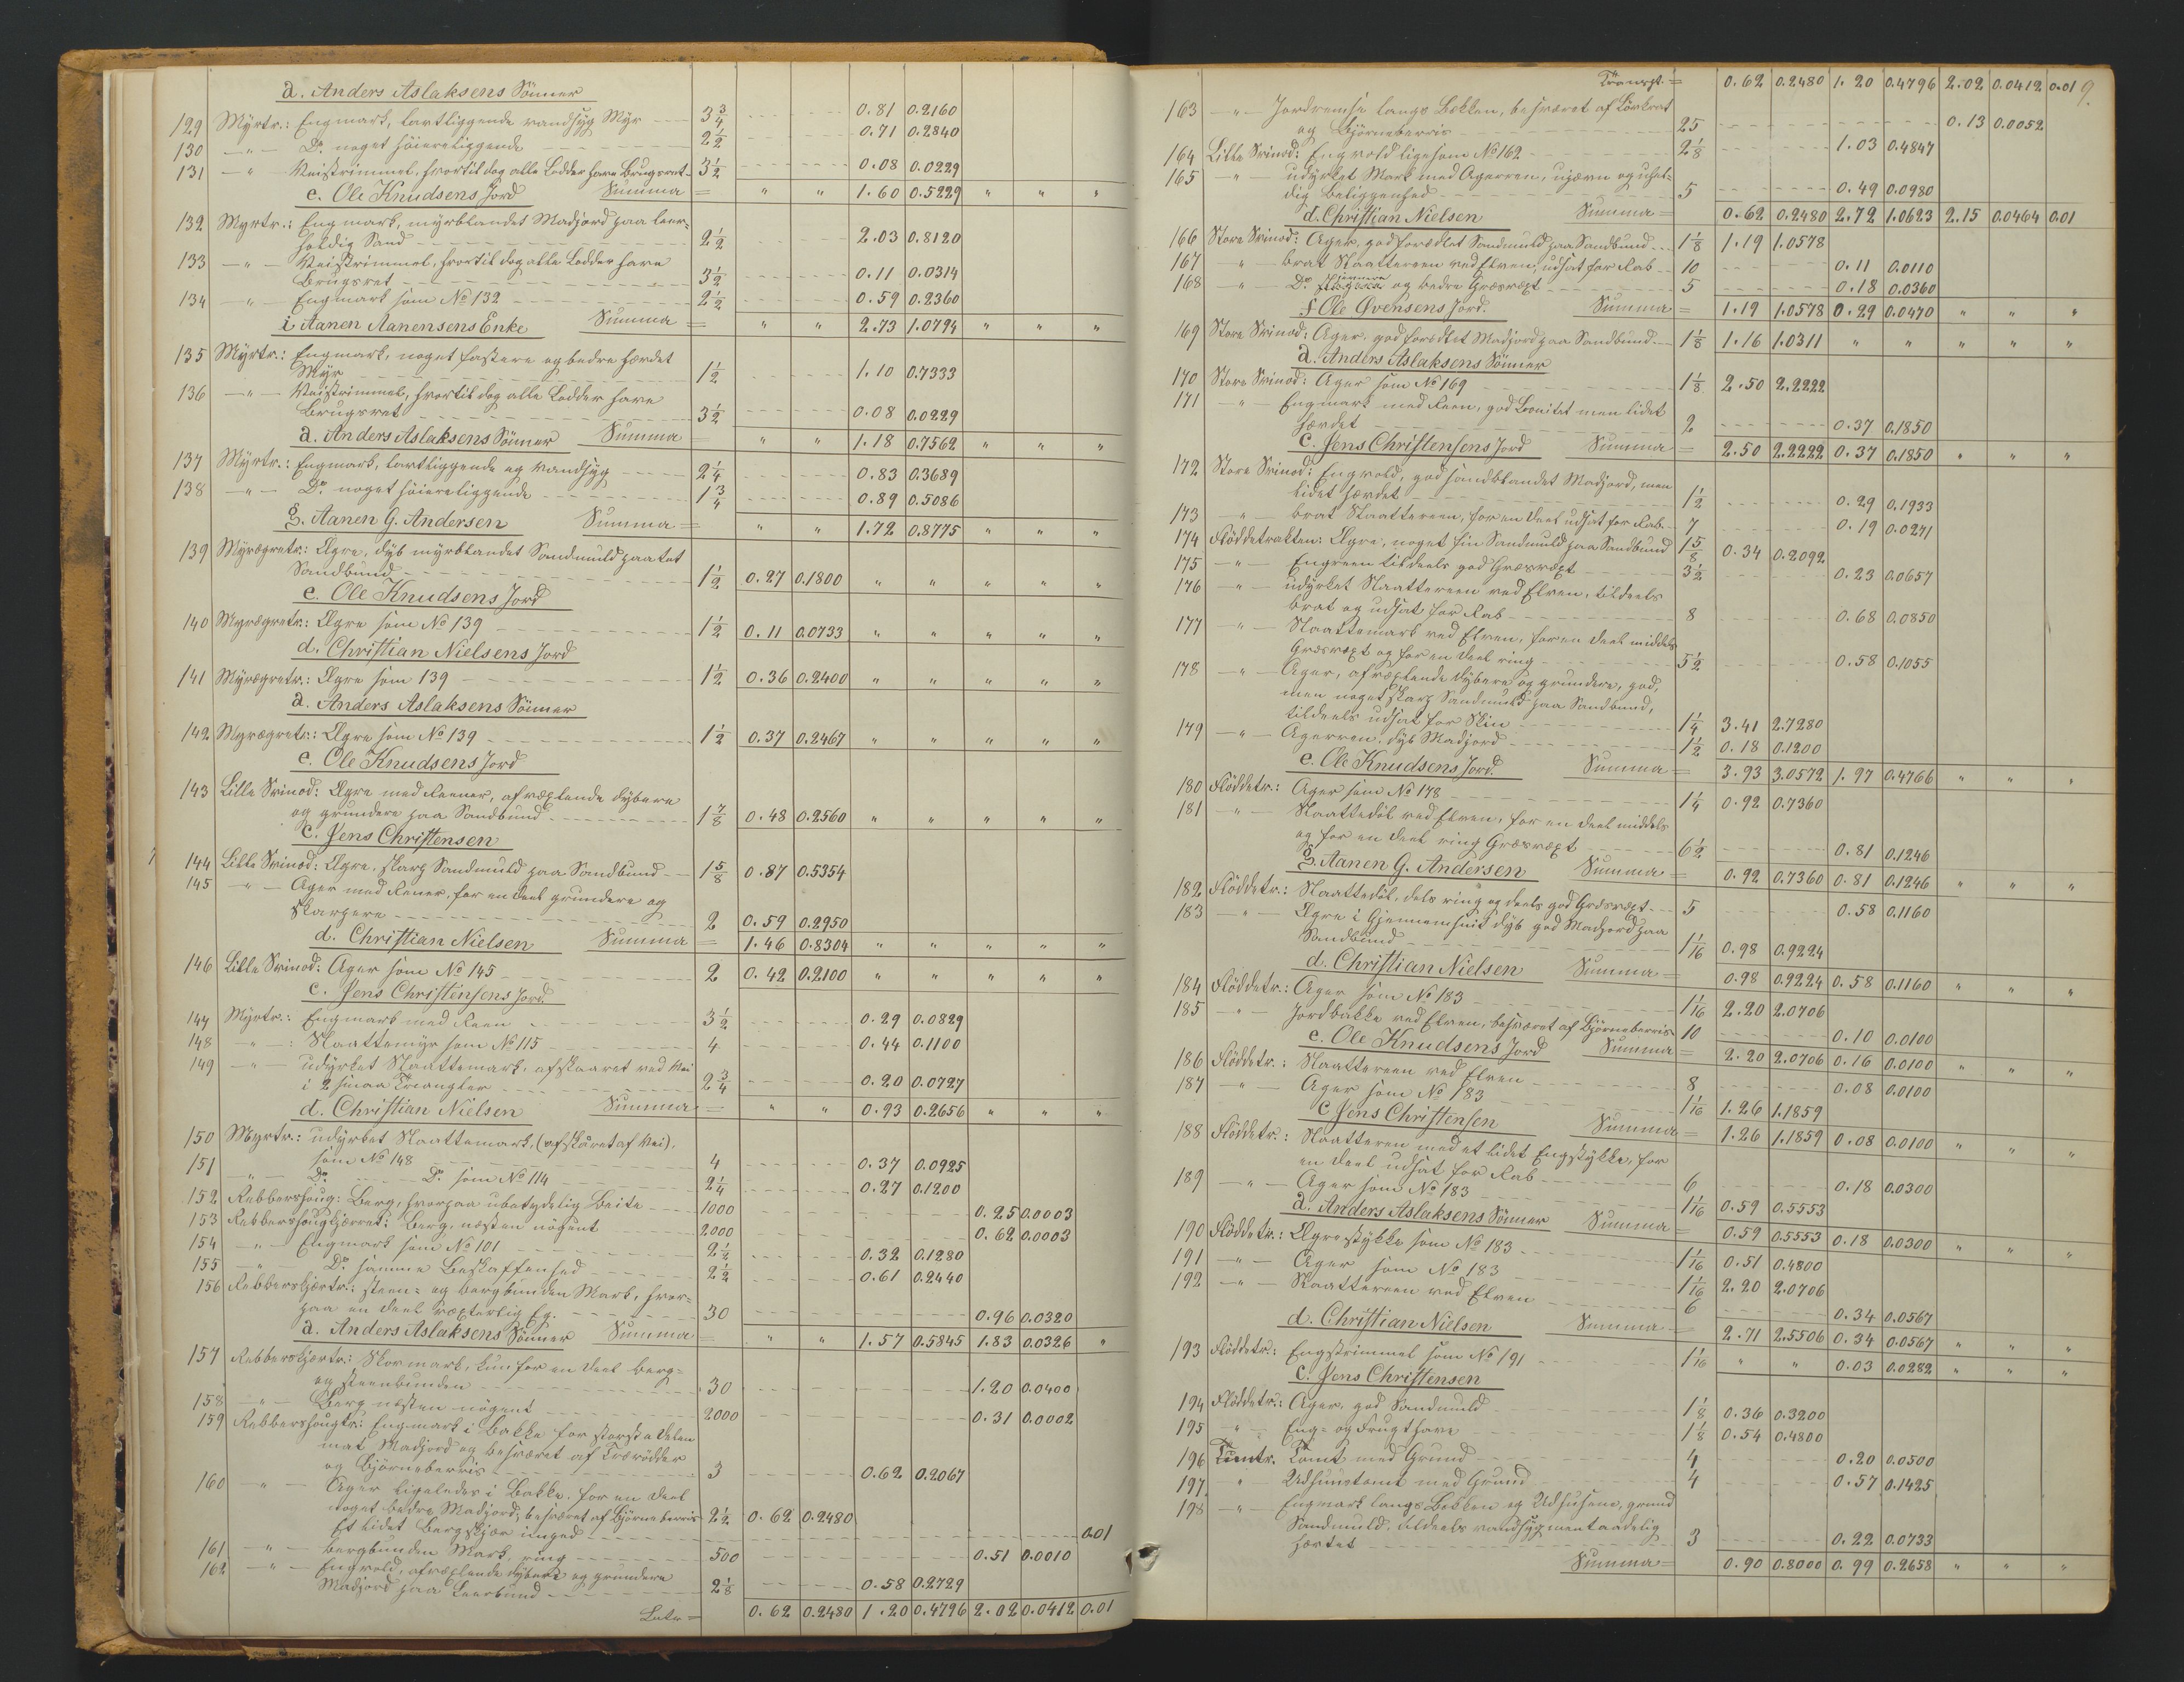 a. Anders Aslaksens Sönner
129 Myrtr.: Engmark, lavtliggende vandsyg Myr 3 3/4 0.81 0.2160
130 —„— Do noget höiereliggende 2 1/2 0.71 0.2840
131 —„— Veistrimmel, hvortil dog alle Lodder have Brugsret 3 1/2 0.08 0.0229
e. Ole Knudsens Jord Summa = „ „ 1.60 0.5229 „ „ „
132 Myrtr.: Engmark, myrblandet Madjord paa leer-
holdig Sand 2 1/2 2.03 0.8120
133 —„— Veistrimmel, hvortil dog alle Lodder have
Brugsret 3 1/2 0.11 0.0314
134 —„— Engmark som No 132 2 1/2 0.59 0.2360
i Aanen Aanensens Enke Summa = „ „ 2.73 1.0794 „ „ „
135 Myrtr.: Engmark, noget fastere og bedre hærdet
Myr 1 1/2 1.10 0.7333
136 —„— Veistrimmel, hvortil dog alle Lodder have
Brugsret 3 1/2 0.08 0.0229
a. Anders Aslaksens Sönner Summa = „ „ 1.18 0.7562 „ „ „
137 Myrtr.: Engmark, lavtliggende og vandsyg 2 1/4 0.83 0.3689
138 —„— Do noget höiereliggende 1 3/4 0.89 0.5086
g. Aanen G. Andersen Summa = „ „ 1.72 0.8775 „ „ „
139 Myrægretr.: Agre, dyb myrblandet Sandmuld paa tet
Sandbund 1 1/2 0.27 0.1800 „ „ „ „ „
e. Ole Knudsens Jord
140 Myrægretr.: Agre som No 139 1 1/2 0.11 0.0733 „ „ „ „ „
d. Christian Nielsens Jord
141 Myrægretr.: Agre som 139 1 1/2 0.36 0.2400 „ „ „ „ „
a. Anders Aslaksens Sönner
142 Myrægretr.: Agre som No 139 1 1/2 0.37 0.2467 „ „ „ „ „
e. Ole Knudsens Jord
143 Lille Svinod: Agre med Reener, afvexlende dybere
og grundere paa Sandbund 1 7/8 0.48 0.2560 „ „ „ „ „
c. Jens Christensen
144 Lille Svinod: Agre, skarp Sandmuld paa Sandbund 1 5/8 0.87 0.5354
145 —„— Ager med Rener, for en deel grundere og
skarpere 2 0.59 0.2950
d. Christian Nielsen Summa = 1.46 0.8304 „ „ „ „ „
146 Lille Svinod: Ager som No 145 2 0.42 0.2100 „ „ „ „ „
c. Jens Christensens Jord
147 Myrtr.: Engmark med Reen 3 1/2 0.29 0.0829
148 —„—: Slaattemyr som No 115 4 0.44 0.1100
149 —„— udyrket Slaattemark, afskaaret ved Vei
i 2 smaa Triangler 2 3/4 0.20 0.0727
d. Christian Nielsen Summa = „ „ 0.93 0.2656 „ „ „
150 Myrtr.: udyrket Slaattemark, (afskåret af Vei),
som No 148 4 0.37 0.0925
151 „ Do Do som No 114 2 1/4 0.27 0.1200
152 Rebbershoug: Berg, hvorpaa ubetydelig Beite 1000 0.25 0.0003
153 Rebbershougkjærret: Berg, næsten nögent 2000 0.62 0.0003
154 —„— Engmark som No 101 2 1/2 0.32 0.1280
155 —„— Do samme Beskaffenhed 2 1/2 0.61 0.2440
156 Rebberskjærtr.: steen- og bergbunden Mark, hvor-
paa en deel vexterlig Eg. 30 0.96 0.0320
a. Anders Aslaksens Sönner Summa = „ „ 1.57 0.5845 1.83 0.0326 „
157 Rebberskjærtr.: Skovmark, kun for en deel berg-
og steenbunden 30 1.20 0.0400
158 „ Berg næsten nögent 2000 0.31 0.0002
159 Rebbershougtr: Engmark i Bakke for störste Delen
mat Madjord og besværet af Trærödder
og Björneberris 3 0.62 0.2067
160 „ Ager ligeledes i Bakke, for en deel
noget bedre Madjord, besværet af Björneberris 2 1/2 0.62 0.2480
Et lidet Bergskjær imged 0.01
161 —„— bergbunden Mark, ring 500 0.51 0.0010
162 —„— Engvold, afvexlende dybere og grundere
Madjord paa Leerbund 2 1/8 0.58 0.2729
Latr = 0.62 0.2480 1.20 0.4796 2.02 0.0412 0.01
9.
Transpt. = 0.62 0.2480 1.20 0.4796 2.02 0.0412 0.01
163 —„— Jordremse langs Bekken, besværet af Lövkrat
og Björneberris 25 0.13 0.0052
164 Lille Svinod: Engvold ligesom No 162 2 1/8 1.03 0.4847
165 —„— udyrket Mark med Agerren, ujævn og uhel-
dig Beliggenhed 5 0.49 0.0980
d. Christian Nielsen Summa = 0.62 0.2480 2.72 1.0623 2.15 0.0464 0.01
166 Store Svinod: Ager, god forædlet Sandmuld paa Sandbund 1 1/8 1.19 1.0578
167 „ brat Slaattereen ved Elven, udsat for Rab 10 0.11 0.0110
168 —„— Do og bedre Græsvext 5 0.18 0.0360
f Ole Övensens Jord. Summa = 1.19 1.0578 0.29 0.0470 „ „ „
169 Store Svinod: Ager, god forædlet Madjord paa Sandbund 1 1/8 1.16 1.0311 „ „ „ „ „
a. Anders Aslaksens Sönner
170 Store Svinod: Ager som No 169 1 1/8 2.50 2.2222
171 —„— Engmark med Reen, god Bonitet men lidet
hærdet 2 0.37 0.1850
c. Jens Christensens Jord Summa = 2.50 2.2222 0.37 0.1850 „ „ „
172 Store Svinod: Engvold, god sandblandet Madjord, men
lidet hærdet 1 1/2 0.29 0.1933
173 „ brat Slaattereen, for en deel udsat for Rab 7 0.19 0.0271
174 Flöddetrakten: Agre, noget fin Sandmuld paa Sandbund 1 5/8 0.34 0.2092
175 —„— Engreen tildeels god Græsvext 3 1/2 0.23 0.0657
176 „ udyrket Slaattereen ved Elven, tildeels
brat og udsat for Rab 8 0.68 0.0850
177 —„— Slaattemark ved Elven, for en deel middels
Græsvext og for en deel ring 5 1/2 0.58 0.1055
178 —„— Ager, afvexlende dybere og grundere, god,
men noget skarp Sandmuld paa Sandbund,
tildeels udsat for Skin 1 1/4 3.41 2.7280
179 —„— Agerren, dyb Madjord 1 1/2 0.18 0.1200
e. Ole Knudsens Jord. Summa = 3.93 3.0572 1.97 0.4766 „ „ „
180 Flöddetr.: Ager som No 178 1 1/4 0.92 0.7360
181 —„— Slaattedöl ved Elven, for en deel middels
og for en deel ring Græsvext 6 1/2 0.81 0.1246
g. Aanen G. Andersen Summa = 0.92 0.7360 0.81 0.1246 „ „ „
182 Flöddetr.: Slaattedöl, dels ring og deels god Græsvext 5 0.58 0.1160
183 —„— Agre i Gjennemsnit dyb god Madjord paa
Sandbund 1 1/16 0.98 0.9224
d. Christian Nielsen Summa = 0.98 0.9224 0.58 0.1160 „ „ „
184 Flöddetr.: Ager som No 183 1 1/16 2.20 2.0706
185 —„— Jordbakke ved Elven, besværet af Björneberris 10 0.10 0.0100
e. Ole Knudsens Jord Summa = 2.20 2.0706 0.16 0.0100 „ „ „
186 Flöddetr.: Slaattereen ved Elven 8 0.08 0.0100
187 —„— Ager som No 183 1 1/16 1.26 1.1859
c Jens Christensen Summa = 1.26 1.1859 0.08 0.0100 „ „ „
188 Flöddetr.: Slaatteren med et lidet Engstykke, for
en deel udsat for Rab 6 0.18 0.0300
189 —„— Ager som No 183 1 1/16 0.59 0.5553
a. Anders Aslaksens Sönner Summa = 0.59 0.5553 0.18 0.0300 „ „ „
190 Flöddetr.: Agrestykke som No 183 1 1/16 0.51 0.4800
191 —„— Ager som No 183 1 1/16 2.20 2.0706
192 —„— Slaattereen ved Elven 6 0.34 0.0567
d. Christian Nielsen Summa = 2.71 2.5506 0.34 0.0567 „ „ „
193 Flöddetr.: Engstrimmel som No 191 1 1/16 „ „ 0.03 0.0282 „ „ „
c. Jens Christensen
194 Flöddetr.: Ager, god Sandmuld 1 1/8 0.36 0.3200
195 „ Eng- og Frugthave 1 1/8 0.54 0.4800
196 Tomt med Grund 4 0.20 0.0500
197 „ Udhuustomt med Grund 4 0.57 0.1425
198 —„— Engmark langs Bekken og Udhusene, grund
Sandmuld, tildeels vandsyg men taadelig
hærdet 3 0.22 0.0733
Summa = 0.90 0.8000 0.99 0.2658 „ „ „